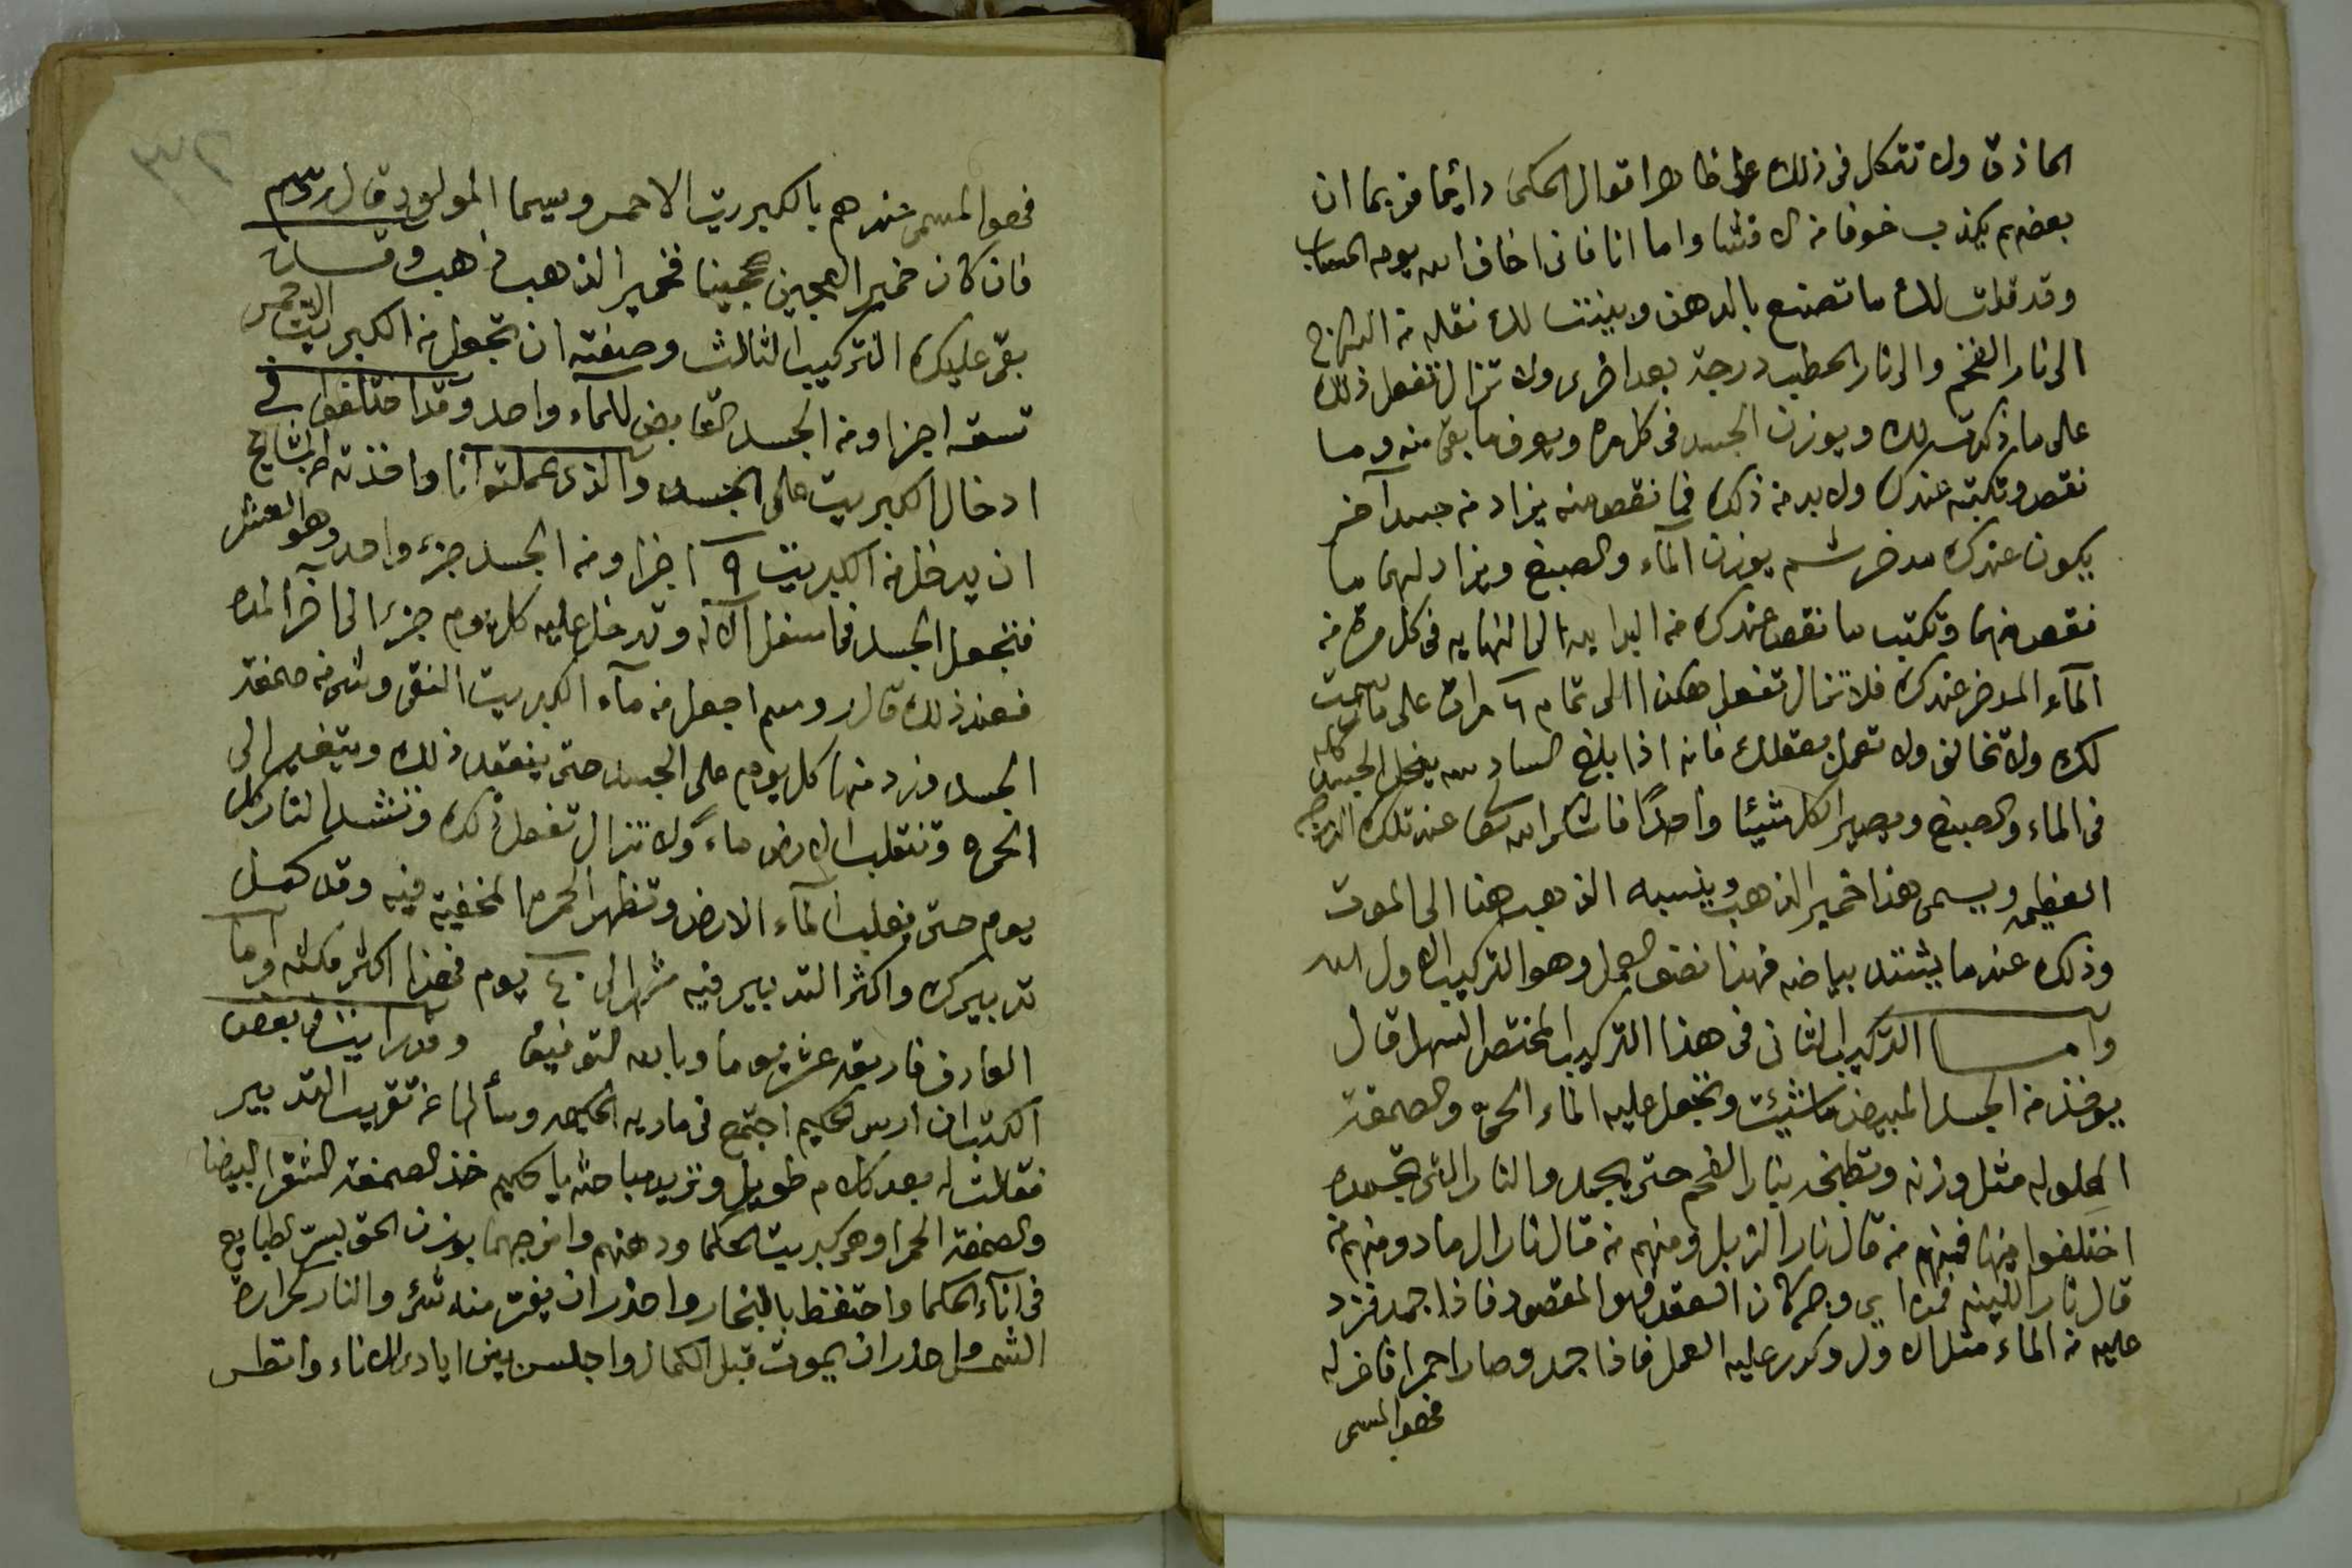 الحاذق ولا تتكل فى ذلك على ظاهر اقوال الحكمى دائما فربما ان
بعضهم يكذب خوفا من الافشا واما انا فانى اخاف الله يوم الحساب
وقد قلت لك ما تصنع بالدهن وبينت لك نقله من
الى نار الفخم والى نار الحطب درجة بعد اخرى ولا تزال تفعل ذلك
على ما ذكرت لك ويوزن الجسد فى كل مره ويعرف ما بقى منه وما
نقص وتكتبه عندك ولا بد من ذلك فما نقص منه يزاد من جسد آخر
يكون عندك مدخر ثم يوزن المآء والصبغ ويزاد لهما ما
نقص منهما وتكتب ما نقص عندك من البدايه الى النهايه فى كل مرة من
المآء المدخر عندك فلا تزال تفعل هكذا الى تمام ٦ مرات على ما
لك ولا تخالف ولا تعمل بعقلك فانه اذا بلغ السادسه ينحل الجسد كله
فى الماء والصبغ ويصير الكل شيئا واحدًا فاشكر الله عند تلك
العظيمه ويسمى هذا خمير الذهب وينسبه الذهب هنا الى الموت
وذلك عندما يشتد بياضه فهذا نصف العمل وهو التركيب الاول
وآما التركيب الثانى فى هذا التركيب المختصر السهل قال
يوخذ من الجسد المبيض ما شيئت وتجعل عليه الماء الحىّ والصمغه
المحلوله مثل وزنه وتطبخه بنار الفحم حتى يجمد والنار التى تجمده
اختلفوا فيها فمنهم من قال نار الزبل ومنهم من قال نار الرماد ومنهم من
قال نار اللينه فمن اى وجه كان العقد فهو المقصود فاذا جمد فزد
عليه من الماء مثل الاول وكرر عليه العمل فاذا جمد وصار احمرا فاعزله
فهو المسمى
فهو المسمى عندهم بالكبريت الاحمر وسيما المولود قال روسم
فان كان خمير العجين عجينا فخمير الذهب ذهب وقسان
بقى عليك التركيب الثالث وصفته ان تجعل من الكبريت الاحمر
تسعه اجزا ومن الجسد القابض للمآء واحد وقد اختلفوا فى
ادخال الكبريت على الجسد والذى عملته انا واخذته من المشايخ
ان يدخل من الكبريت ٩ اجزا ومن الجسد جزء واحد وهو العشر
فتجعل الجسد فى اسفل الآله وتدخل عليه كل يوم جزء الى اخر المده
فعند ذلك قال روسم اجعل من مآء الكبريت النقى وشى من صمغة
الجسد وزد منها كل يوم على الجسد حتى ينعقد ذلك ويتغير الى
الحمره وتنقلب الارض ماءً ولا تزال تفعل ذلك وتشد النار كل
يوم حتى تقلب المآء الارض وتظهر الحمره المخفية فيه وقد كمل
تدبيرك واكثر التدبير فيه شهر الى ٤٠ يوم فهذا اكثر مكثه واما
العارف فاربعة عشر يوما وبالله التوفيق وقد رايت فى بعض
الكتب ان ارس الحكيم اجتمع فى ماريه الحكيمه وسألها عن تقريب التدبير
فقالت له بعد كلام طويل ونريد مباحثه يا حكيم خذ الصمغه الشقرا البيضا
والصمغه الحمرا وهى كبريت الحكما ودهنهم وامزجهما بوزن الحق بسرّ الطبايع
فى انآء الحكما واحتفظ بالبخار واحذر ان يفتر منه شىء والنار كحراره
الشمس واحذر ان يموت قبل الكمال واجلس بين ايادى الاناء وانظر